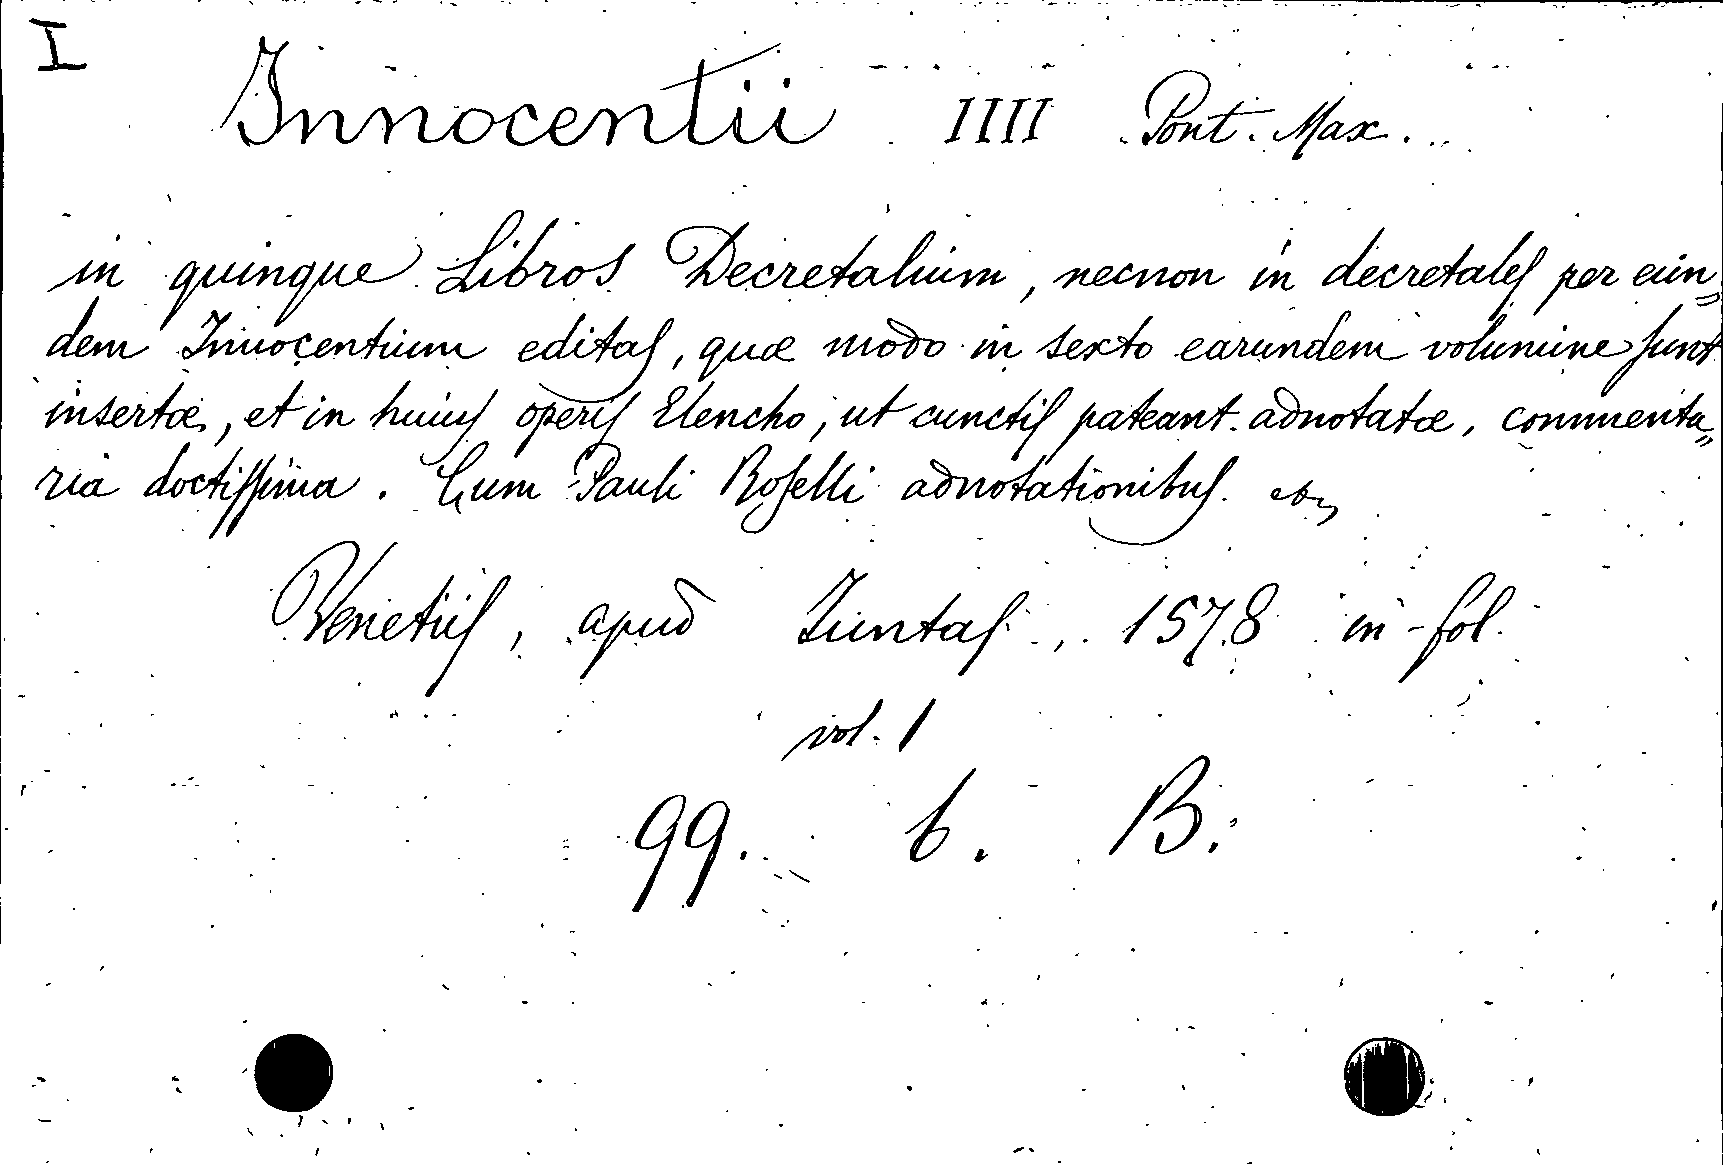 I
Innocentii IIII Pont. Max.
in quinque Libros Decretalium, necnon in decretales per eun„
dem Innocentium editas, quæ modo in sexto earundem volumine sunt
insertæ, et in huius operis Elencho, ut cunctis pateant adnotatæ, commenta„
ria doctissima. Cum Pauli Roselli adnotationibus.
Venetiis, apud Iuntas, 1578 in-fol.
vol. 1
99. 6. B.